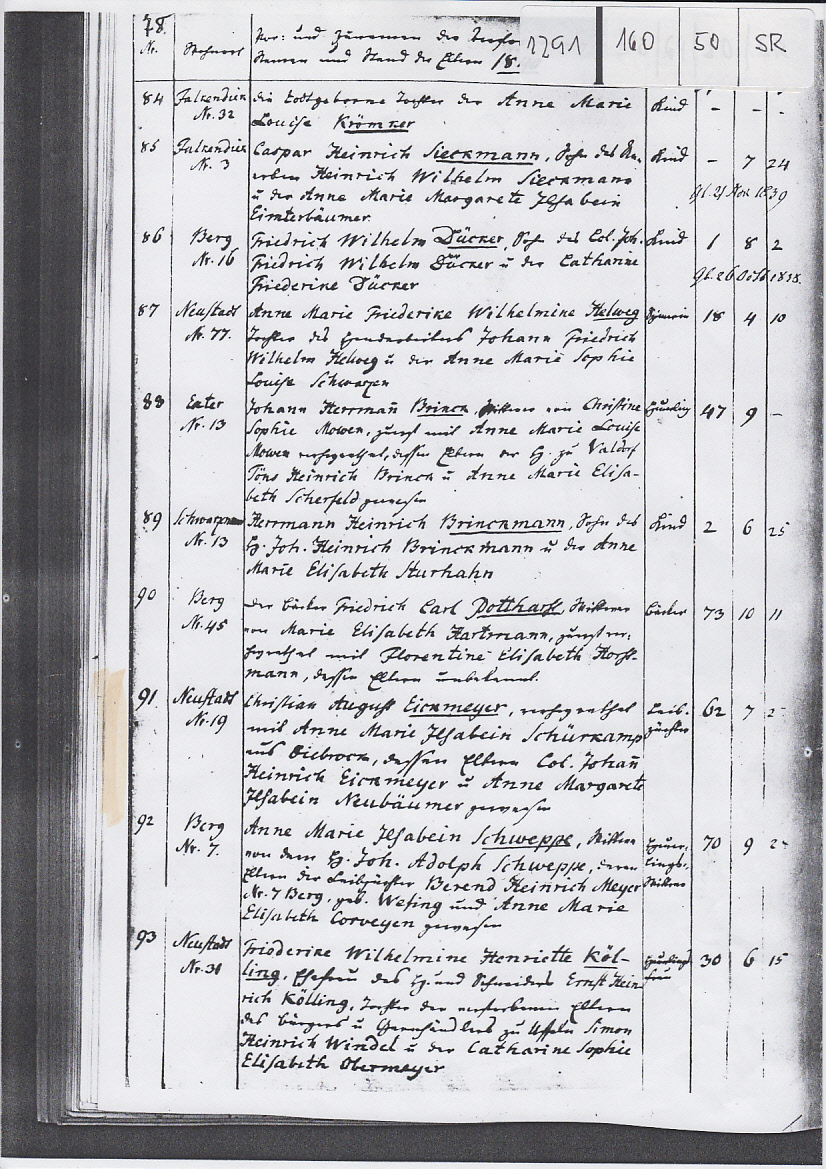 78.
1291 160 50 SR
Nr. Wohnort Vor- und Zunamen der
Namen und Stand der Eltern 18.
84 Falkendiek die todtgeborne Tochter der Anne Marie Kind - - -
Nr. 32 Louise Krömker
85 Falkendiek Caspar Heinrich Sieckmann, Sohn des An- Kind - 7 24
Nr. 3 erben Heinrich Wilhelm Sieckmann
u der Anne Marie Margarete Ilsabein gb. 21 Nov. 1839
Eimterbäumer
86 Berg Friedrich Wilhelm Dücker, Sohn des Col. Joh. Kind 1 8 2
Nr. 16 Friedrich Wilhelm Dücker u der Catharine
Friederike Dücker gb. 26 Octb 1838.
87 Neustadt Anne Marie Friederike Wilhelmine Helweg 18 4 10
Nr. 77. Tochter des Handarbeiters Johann Friedrich
Wilhelm Helweg u der Anne Marie Sophie
Louise Schwarzen
88 Exter Johann Herrmann Brinck, Wittwer von Christine Heuerling 47 9 -
Nr. 13 Sophie Mowen, zuerst mit Anne Marie Louise
Mowen verheyrathet, dessen Eltern der H. zu Valdorf
Töns Heinrich Brinck u Anne Marie Elisa-
beth Scherfeld gewesen
89 Herrmann Heinrich Brinckmann, Sohn des Kind 2 6 25
Nr. 13 H. Joh. Heinrich Brinckmann u der Anne
Marie Elisabeth Sturhahn
90 Berg der Bäcker Friedrich Carl Pottharst, Wittwer Bäcker 73 10 11
Nr. 45 von Marie Elisabeth Hartmann, zuerst ver-
heyrathet mit Florentine Elisabeth Horst-
mann, dessen Eltern unbekannt.
91 Neustadt Christian August Eickmeyer, verheyrathet Leib- 62 7
Nr. 19 mit Anne Marie Ilsabein Schürkamp züchter
aus Diebrock, dessen Eltern Col. Johann
Heinrich Eickmeyer u Anne Margarete
Ilsabein Neubäumer gewesen
92 Berg Anne Marie Ilsabein Schweppe, Wittwe Heuer- 70 9
Nr. 7. von dem H. Joh. Adolph Schweppe, deren lings-
Eltern der Leibzüchter Berend Heinrich Meyer Wittwe
Nr. 7 Berg, geb. Wefing und Anne Marie
Elisabeth Corveyen gewesen
93 Neustadt Friederike Wilhelmine Henriette Köl- Heuerlings 30 6 15
Nr. 31 ling, Ehefrau des H. und Schneiders Ernst Hein frau
rich Kölling, Tochter der verstorbenen Eltern
des Bürgers u Garnhändlers zu Uffeln Simon
Heinrich Windel u der Catharine Sophie
Elisabeth Obermeyer